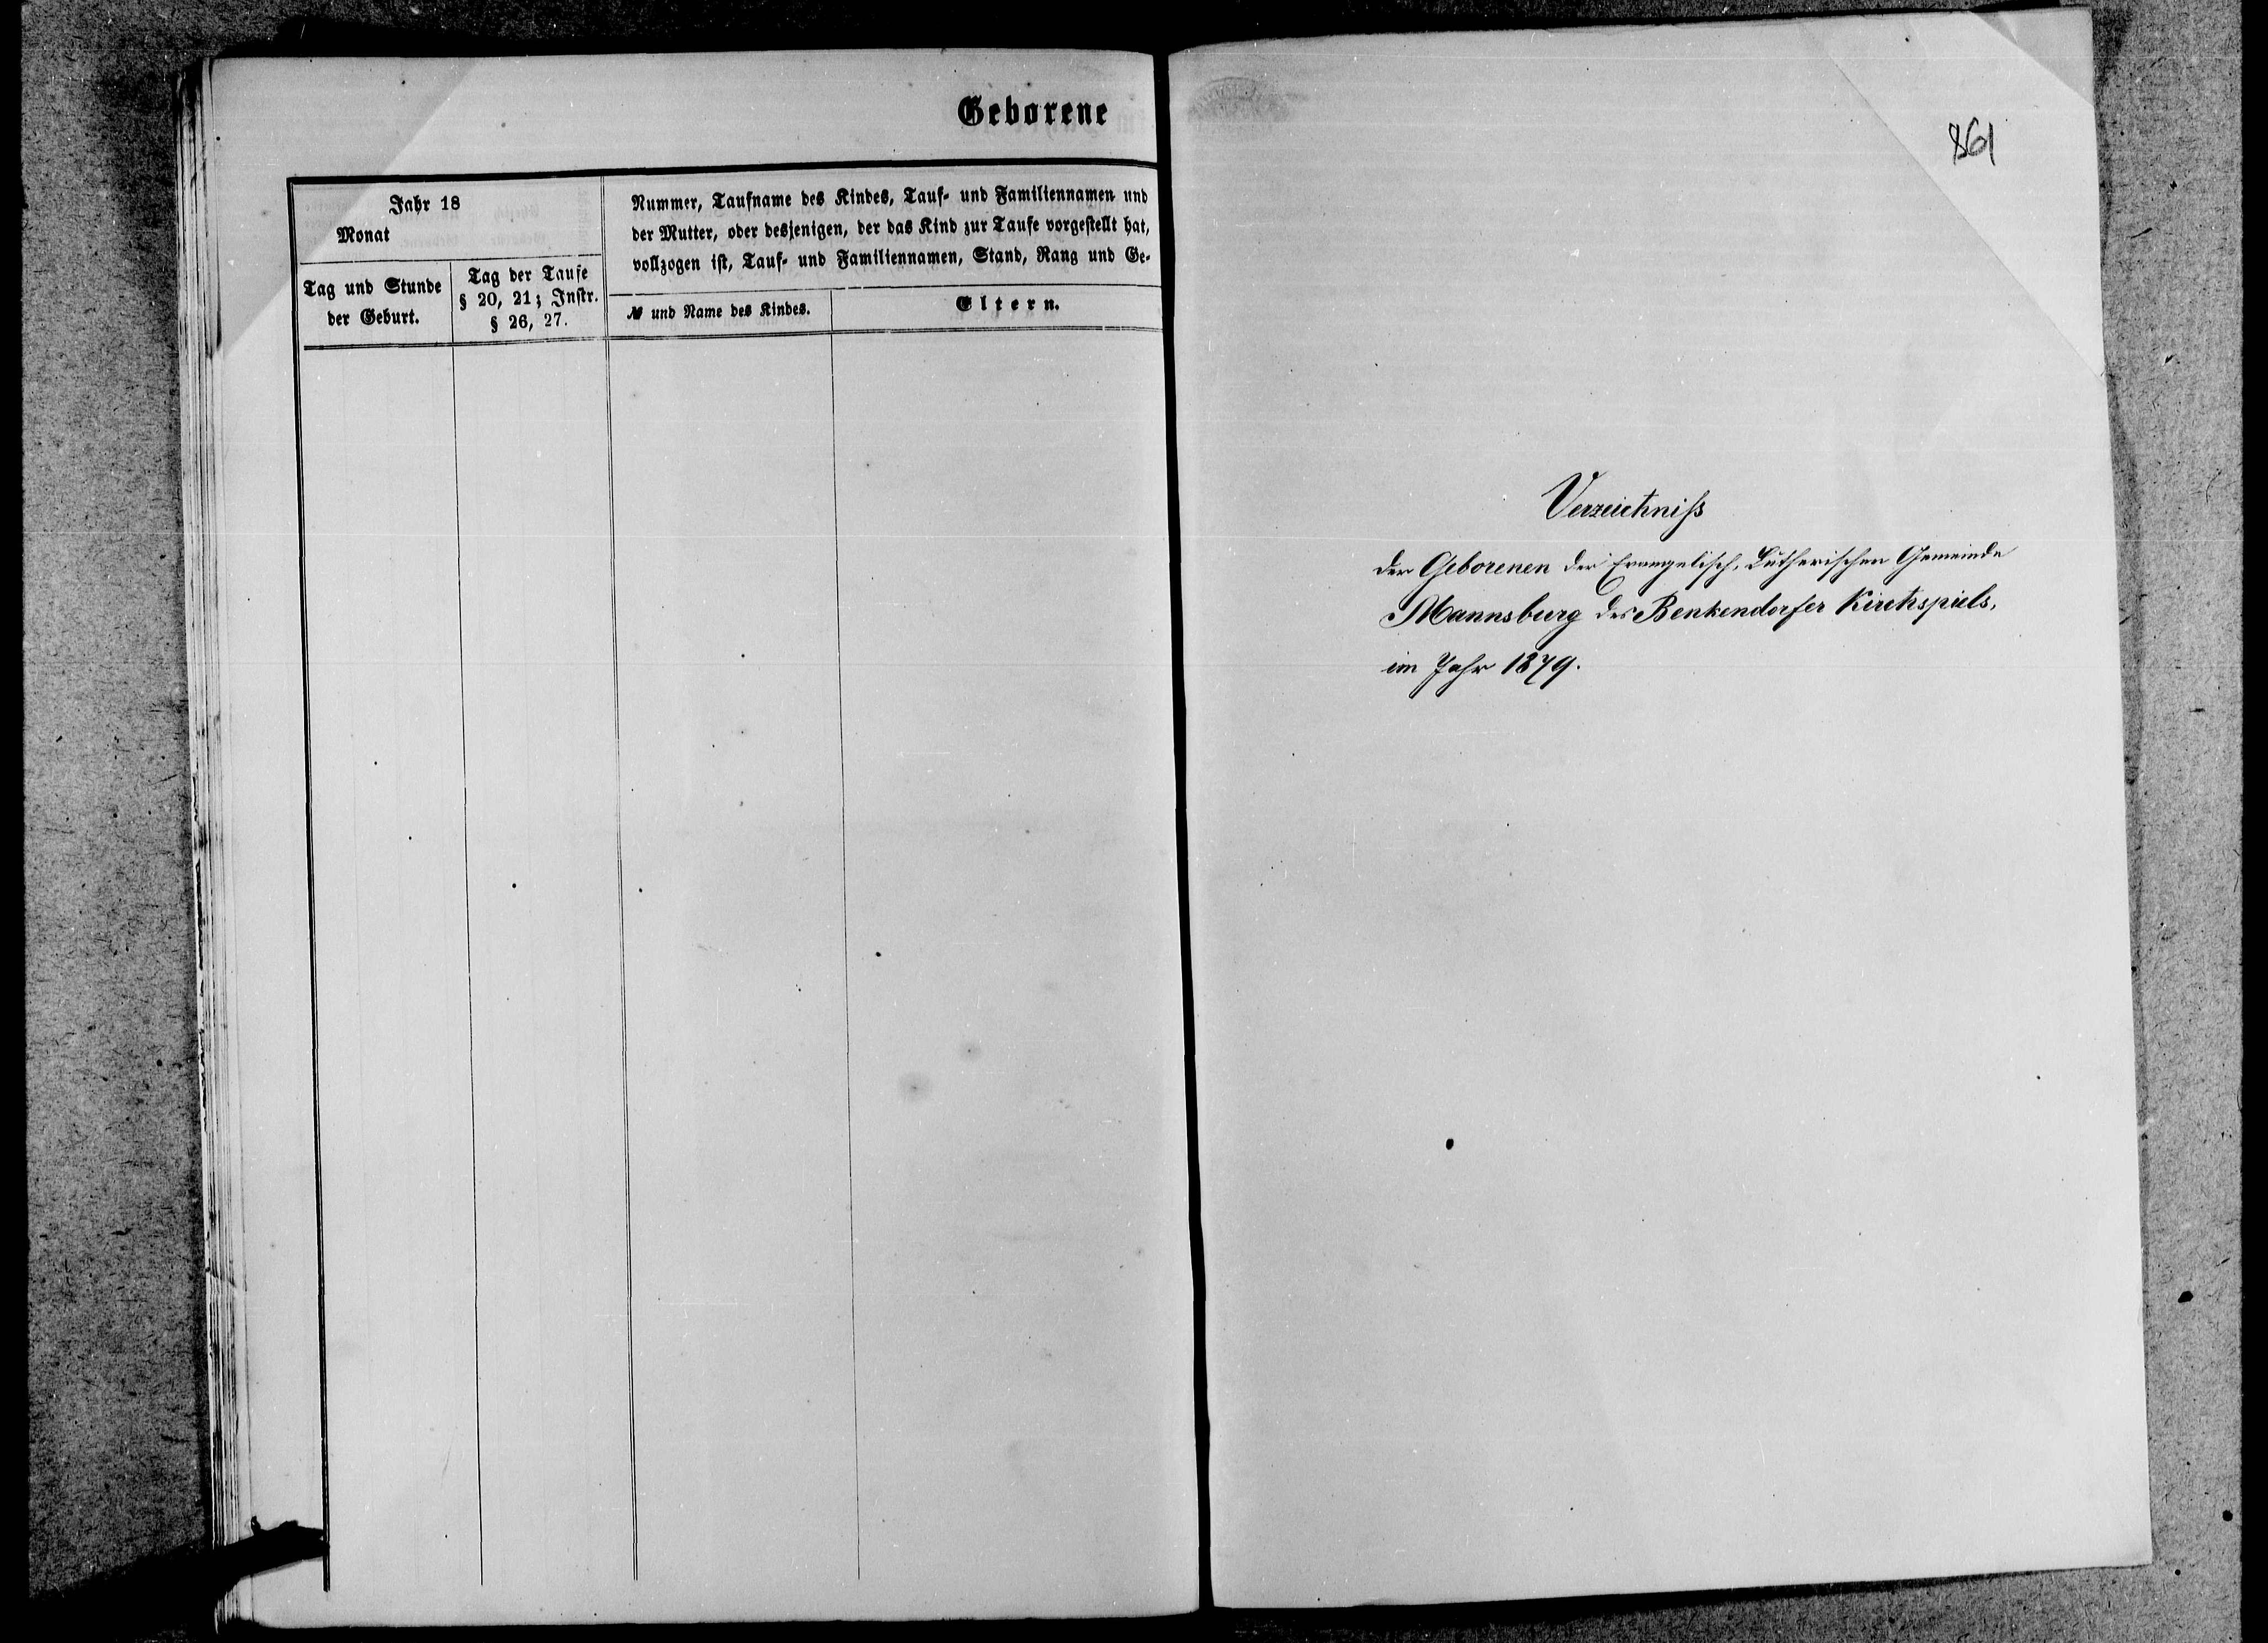 Geborene
Jahr 18
Monat
Tag und Stunde
der Geburt.
Tag der Taufe
§ 20, 21; Instr.
§ 26, 27.
Nummer, Taufname des Kindes, Tauf- und Familiennamen und
der Mutter, oder desjenigen, der das Kind zur Taufe vorgestellt hat,
vollzogen ist, Tauf- und Familiennamen, Stand, Rang und Ge-
№ und Name des Kindes.
Eltern.
861
Verzeichniß
der Geborenen der Evangelisch-Lutherischen Gemeinde
Mannsburg des Benkendorfer Kirchspiels,
im Jahr 1879.